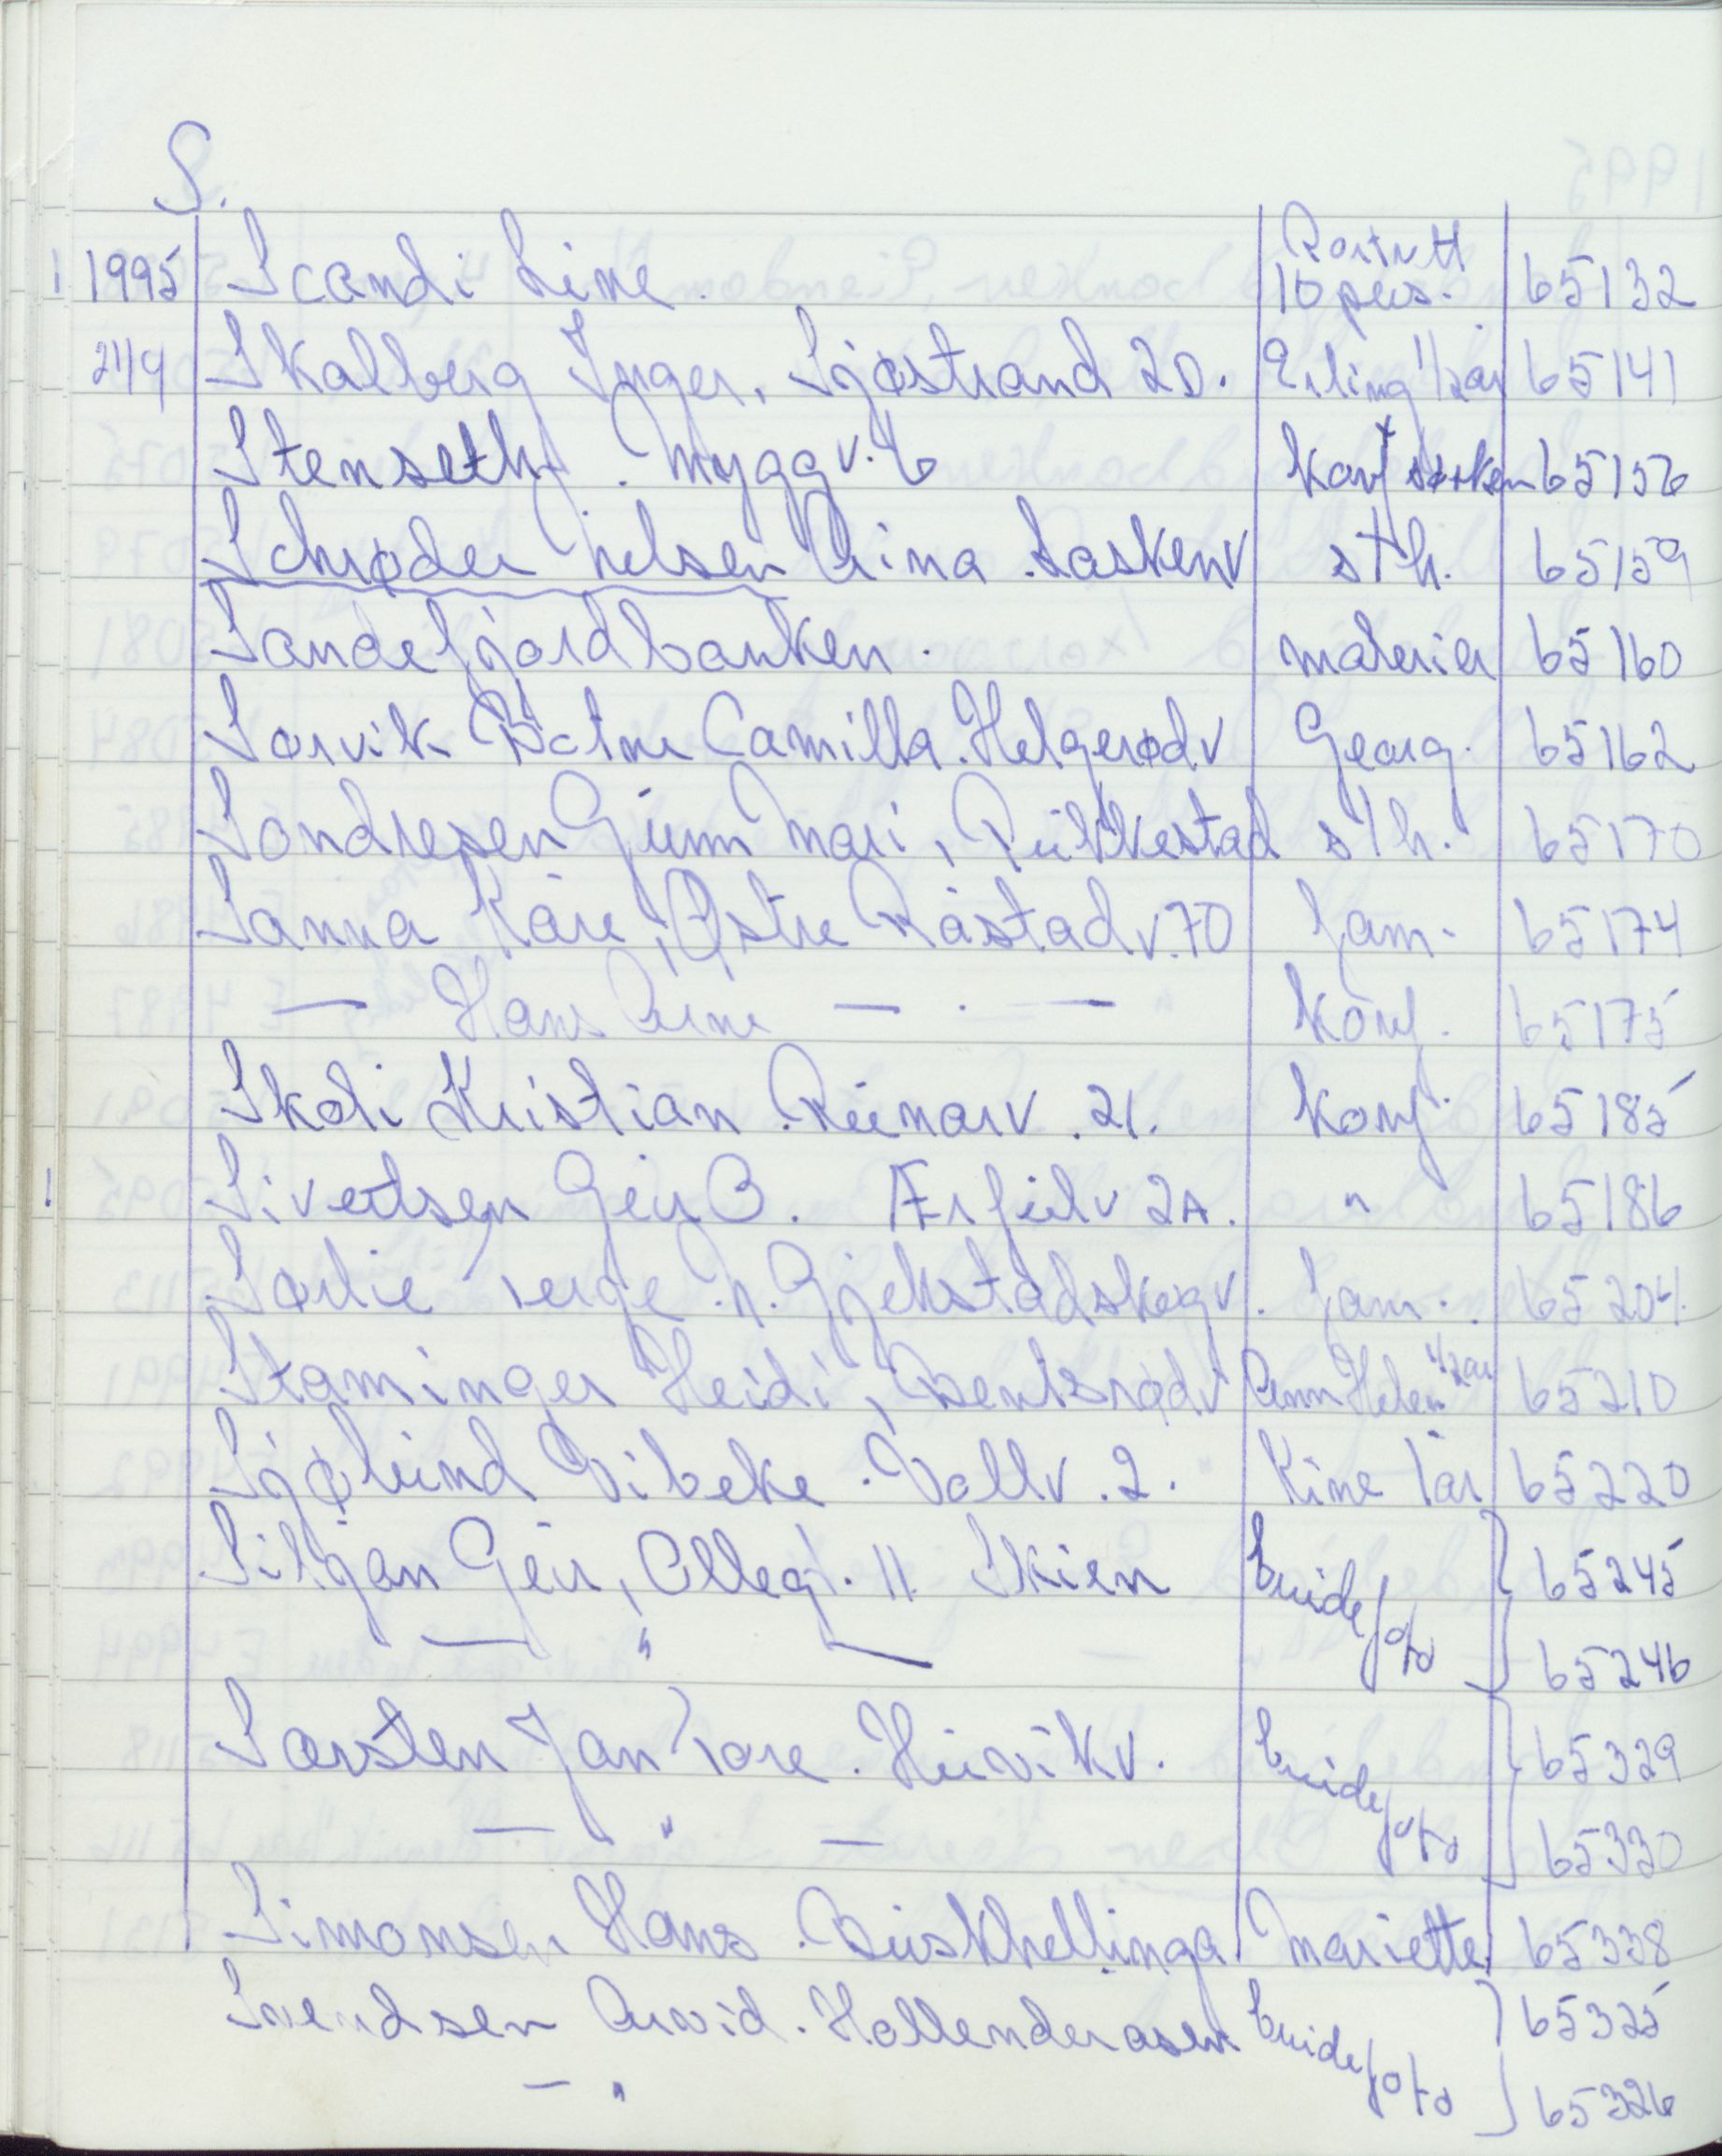 S.
1995 Scandi Line. Portrett 10 pers. 65132
24/9 Skalberg Inger. Sjøstrand 20. Erling 1/2 år 65141
Stenseth. Myggv. 6 Konf 65156
Schrøder Nelsen Anna. Laskenv sth. 65159
Sandefjordbanken. malerier 65160
Sørvik Botne Camilla. Helgerødv Georg. 65162
Sondresen Gunn Mari, Rukkestad sth. 65170
Sanna Kåre, Østre Råstadv. 70 fam. 65174
— Hans Arne — . — Konf. 65175
Skoli Kristian. Runarv. 21. Konf. 65185
Sivertsen Geir B. Ærfulv 2A. " 65186
Sørlie N. Gjekstadskogv. fam. 65204
Staminger Heidi, Bentsrødv Ann Helen 1/2 år 65210
Sjølund Vibeke. Vollv. 2. Kine 1 år 65220
Siljan Geir, 11 Skien brudefoto 65245
— " — 65246
Sørsten Jan Tore. Huvikv. brudefoto 65329
— " — 65330
Simonsen Hans. Buskhellinga Mariette 65338
Svendsen Arvid. Hollenderåsen brudefoto 65325
— " 65326